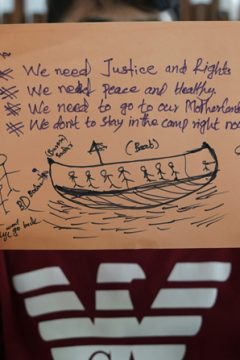 # We need Justice and Rights
# We need peace and Healthy.
# We need to go to our Motherland
# We don't to stay in the camp right no
(Boat)
GA